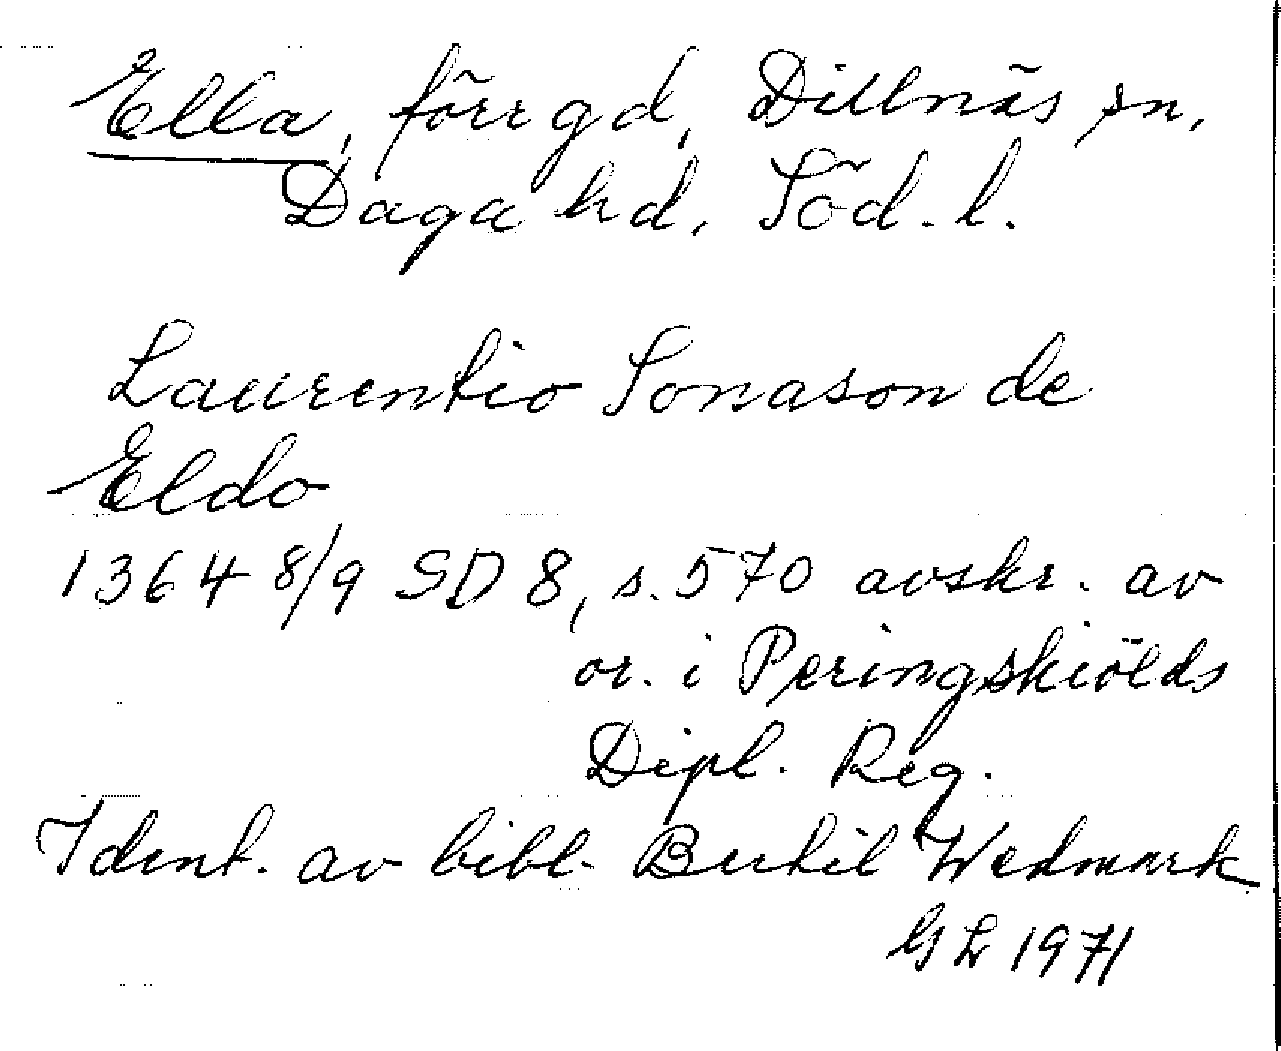 Ella, förr gd, Dillnäs sn,
Daga hd, Söd. l.
Laurentio Jonason de
Eldo
1364 8/9 SD 8, s. 570 avskr. av
or. i Peringskiölds
Dipl. Reg.
Ident. av bibl. Bertil Wedmark
GL 1971